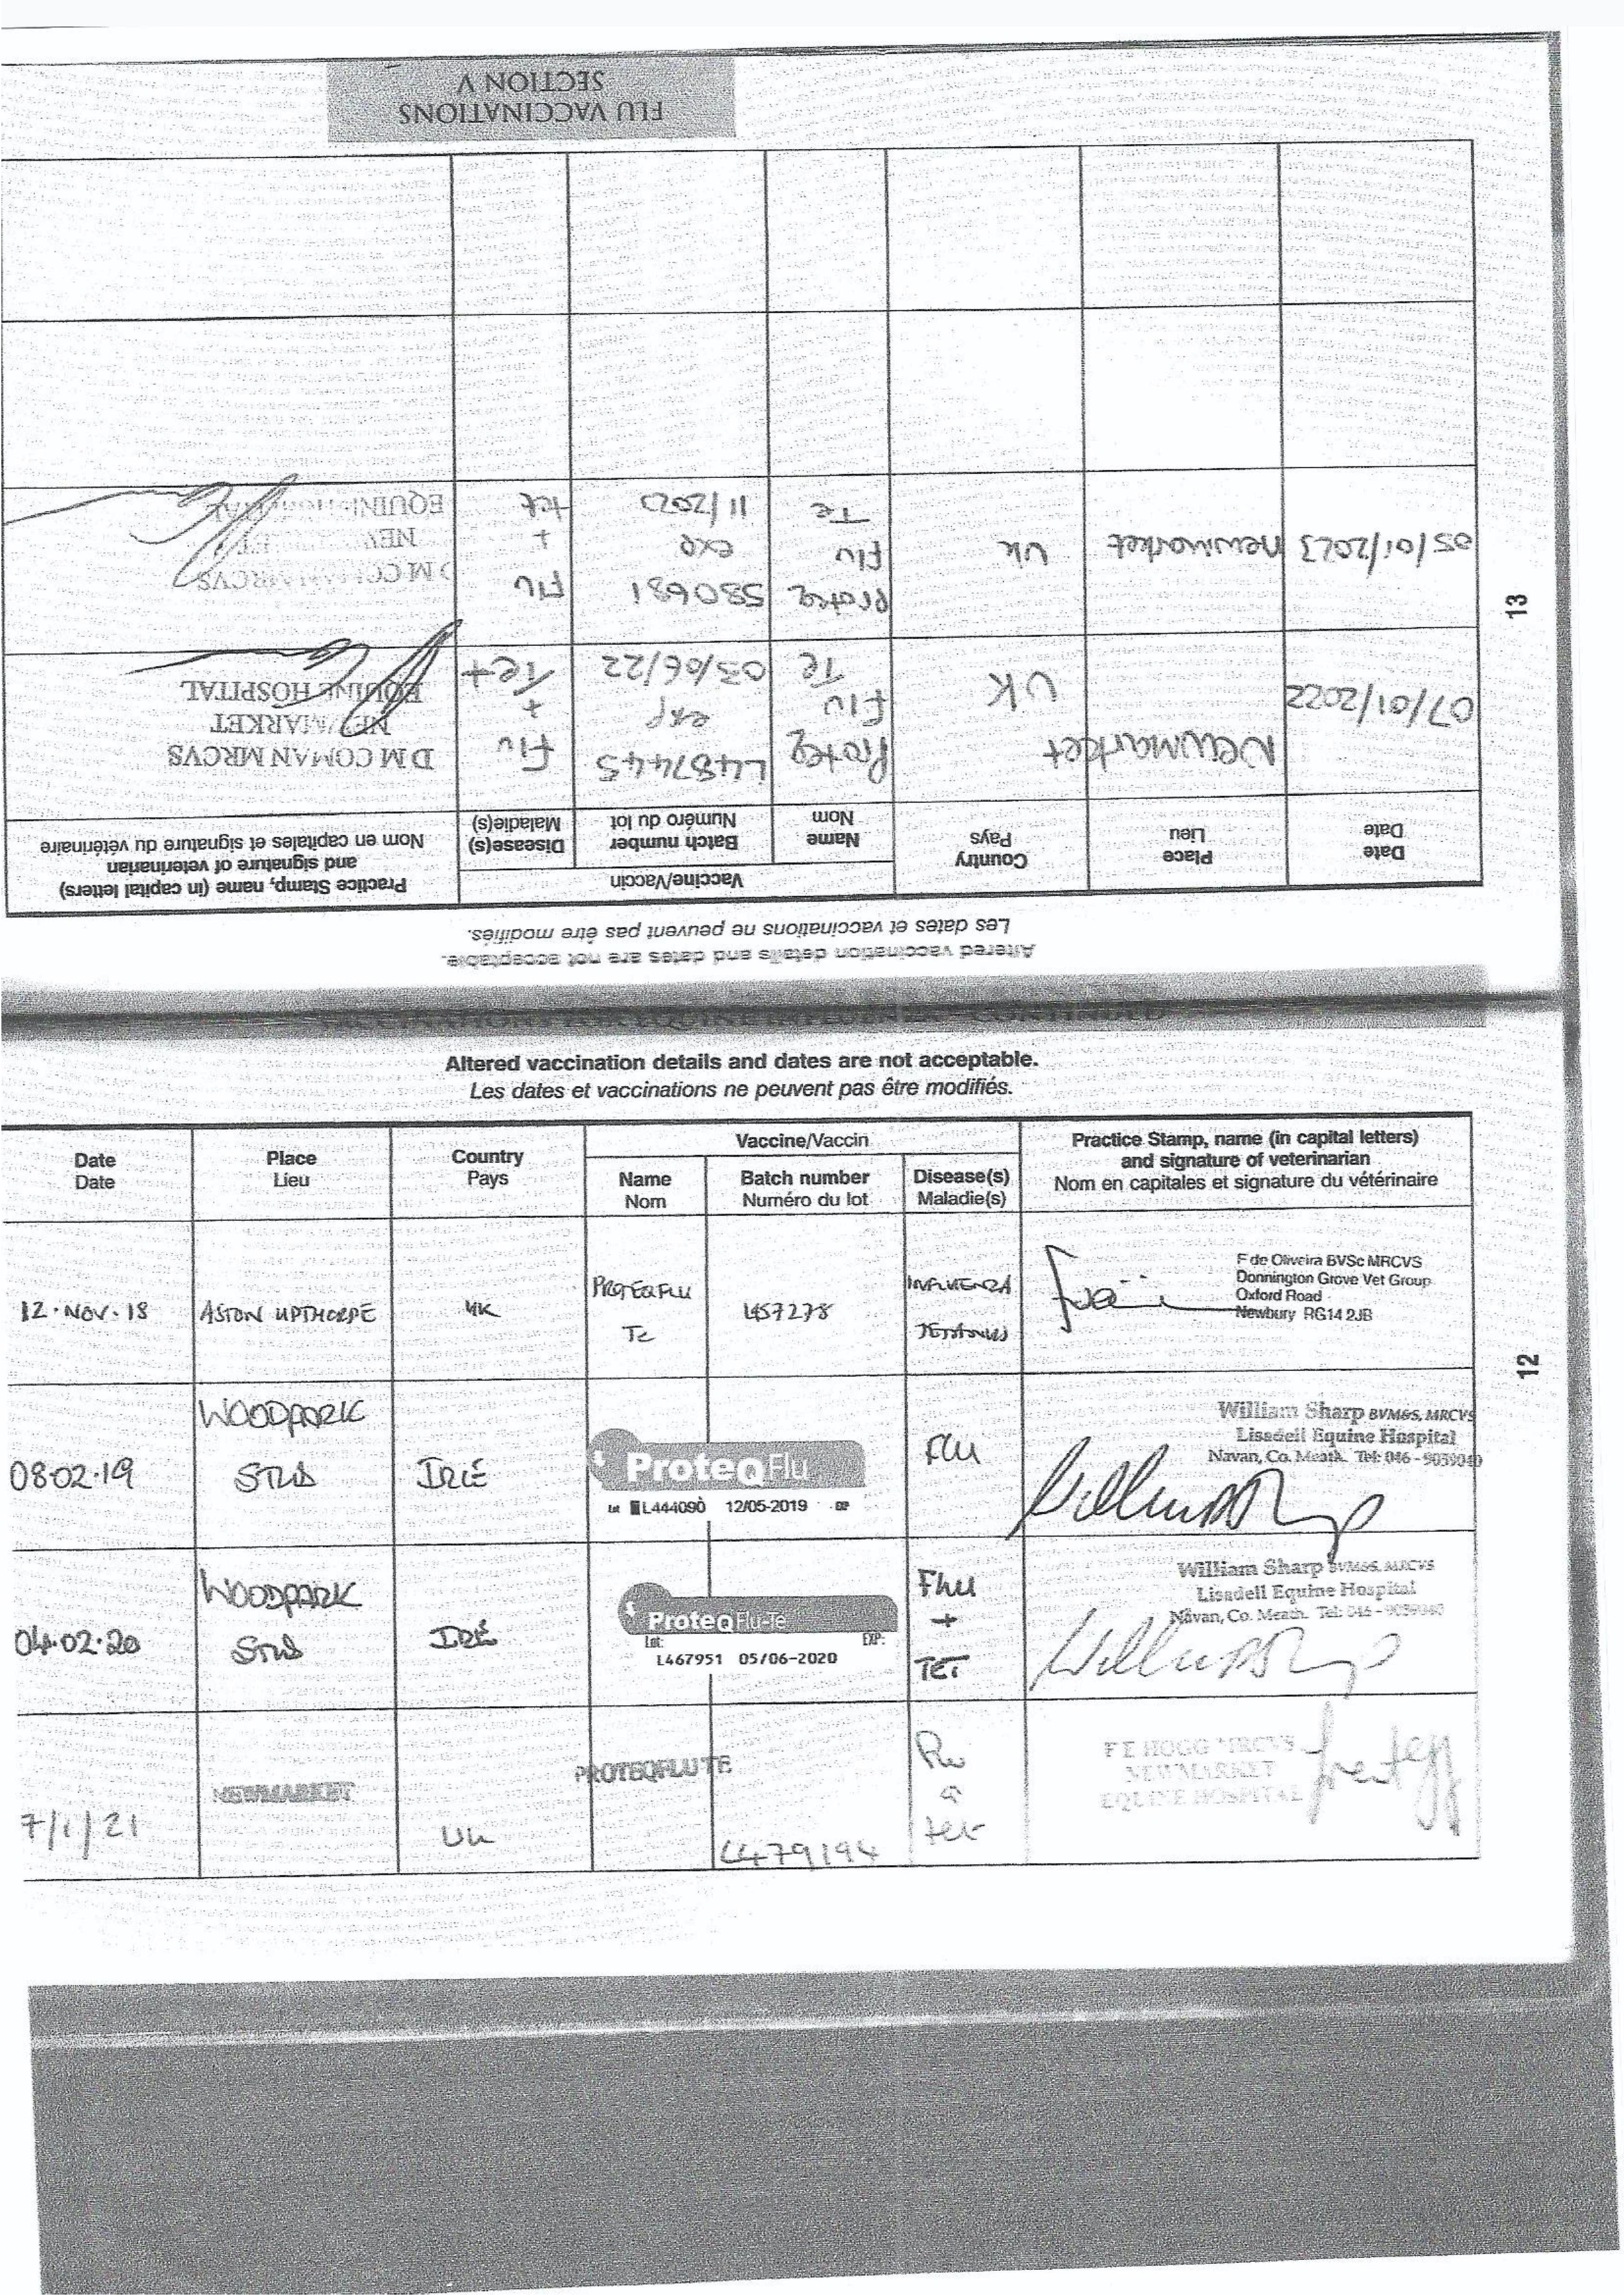 FLU VACCINATIONS
SECTION V
Altered vaccination details and dates are not acceptable.
Les dates et vaccinations ne peuvent pas être modifiés.
Date
Date
Place
Lieu
Country
Pays
Vaccine/Vaccin
Name
Nom
Batch number
Numéro du lot
Disease(s)
Maladie(s)
Practice Stamp, name (in capital letters)
and signature of veterinarian
Nom en capitales et signature du vétérinaire
07/01/2022
Newmarket
UK
Proteq
Flu
Te
L487445
exp
03/06/22
Flu
+
Tet
D M COMAN MRCVS
NEWMARKET
EQUINE HOSPITAL
05/01/2023
Newmarket
UK
Proteq
Flu
Te
exp
Flu
+
tet
D M COMAN MRCVS
EQUINE HOSPITAL
13
Altered vaccination details and dates are not acceptable.
Les dates et vaccinations ne peuvent pas être modifiés.
Date
Date
Place
Lieu
Country
Pays
Vaccine/Vaccin
Name
Nom
Batch number
Numéro du lot
Disease(s)
Maladie(s)
Practice Stamp, name (in capital letters)
and signature of veterinarian
Nom en capitales et signature du vétérinaire
12.NOV.18
ASTON UPTHORPE
UK
PROTEQFLU
Te
L457278
INFLUENZA
F de Oliveira BVSc MRCVS
Donnington Grove Vet Group
Oxford Road
Newbury RG14 2JB
08.02.19
WOODPARK
STUD
IRE
ProteqFlu
Lot L444090 12/05-2019 EXP
Flu
William Sharp BVM&S, MRCVS
Lisadell Equine Hospital
Navan, Co. Meath. Tel: 046 - 9059040
12
04.02.20
WOODPARK
STUD
IRE
ProteqFlu-Te
Lot: EXP:
L467951 05/06-2020
Flu
+
TET
William Sharp BVM&S, MRCVS
Lisadell Equine Hospital
Navan, Co. Meath. Tel: 046 - 9059040
7/1/21
NEWMARKET
UK
PROTEQFLUTE
L479194
Flu
tet
F E HOGG MRCVS
NEWMARKET
EQUINE HOSPITAL